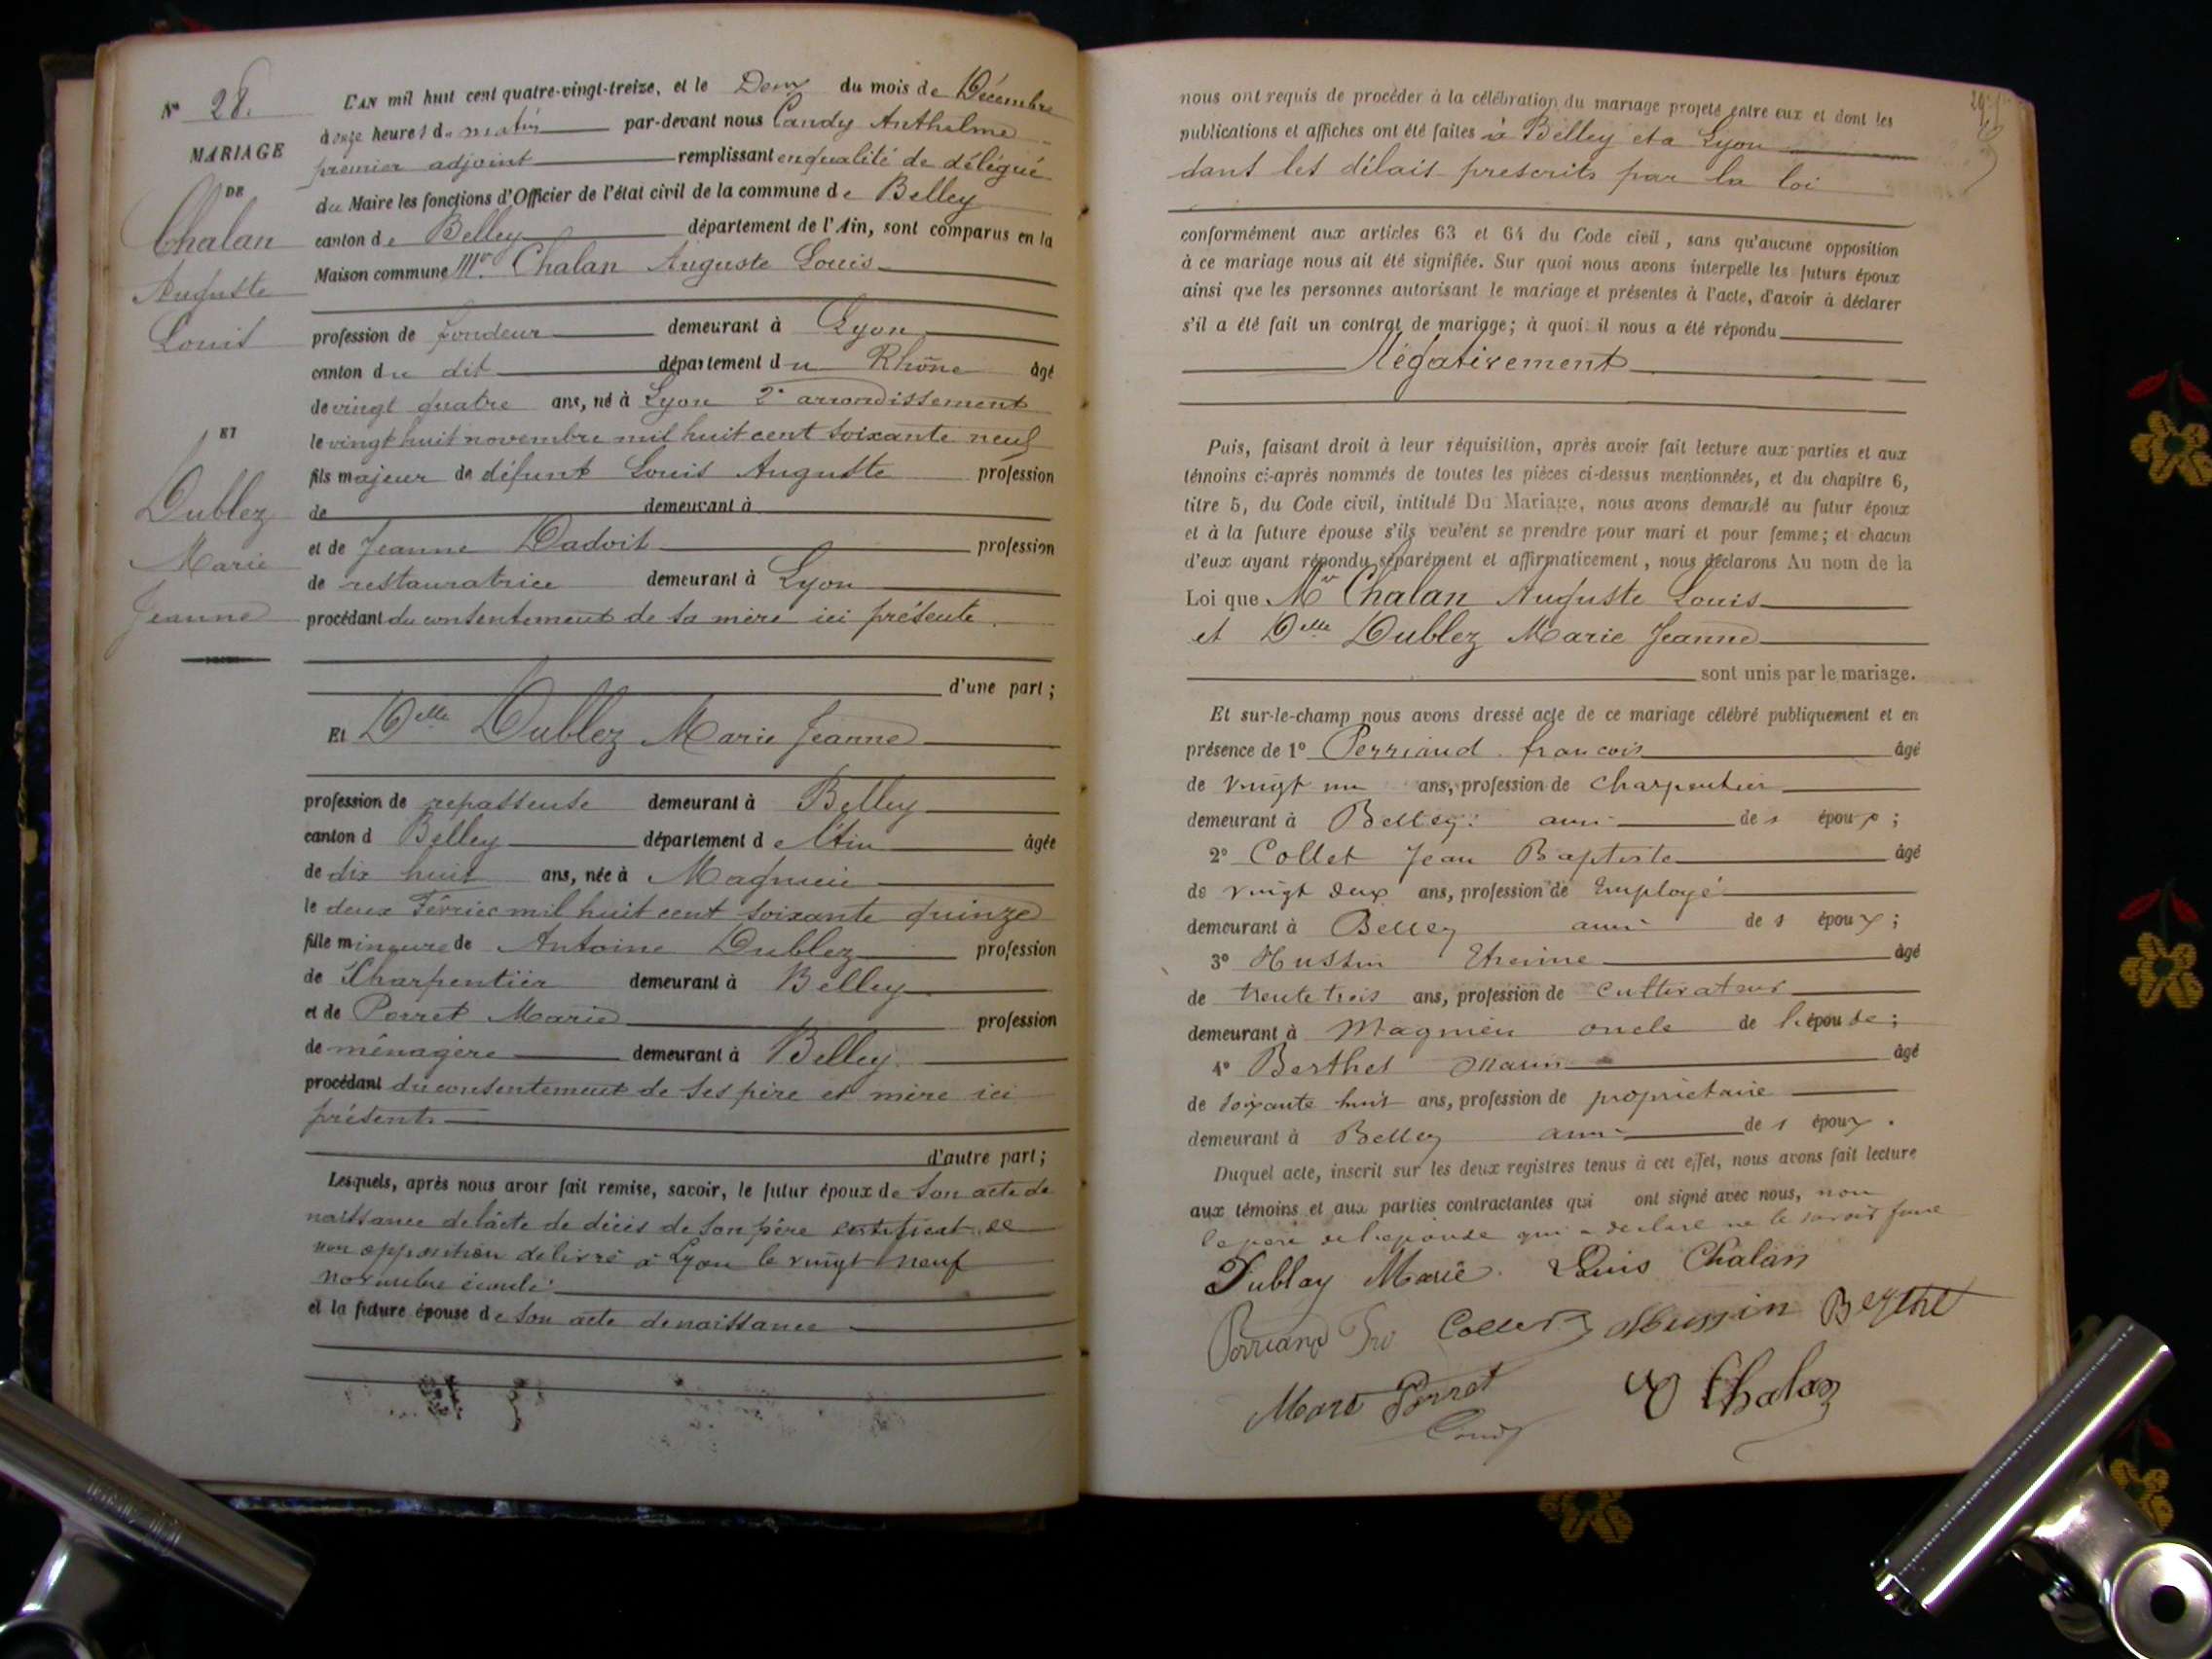 N° 28.
MARIAGE
DE
Chalan
Auguste
Louis
ET
Dublez
Marie
Jeanne
L'AN mil huit cent quatre-vingt-treize, et le Deux du mois de Décembre
à onze heures du matin par-devant nous Candy Anthelme
premier adjoint remplissant en qualité de délégué
du Maire les fonctions d'Officier de l'état civil de la commune de Belley
canton de Belley département de l'Ain, sont comparus en la
Maison commune Mr Chalan Auguste Louis
profession de fondeur demeurant à Lyon
canton du dit département du Rhône âgé
de vingt quatre ans, né à Lyon 2e arrondissement
le vingt huit novembre mil huit cent soixante neuf
fils majeur de défunt Louis Auguste profession
de demeurant à
et de Jeanne Dadvit profession
de restauratrice demeurant à Lyon
procédant du consentement de sa mère ici présente.
d'une part;
Et Delle Dublez Marie Jeanne
profession de repasseuse demeurant à Belley
canton d Belley département de l'Ain âgée
de dix huit ans, née à Magnieu
le deux Février mil huit cent soixante quinze
fille mineure de Antoine Dublez profession
de Charpentier demeurant à Belley
et de Perret Marie profession
de ménagère demeurant à Belley.
procédant du consentement de ses père et mère ici
présents
d'autre part;
Lesquels, après nous avoir fait remise, savoir, le futur époux de son acte de
naissance de l'acte de décès de son père certificat de
non opposition délivré à Lyon le vingt neuf
novembre écoulé
et la future épouse de son acte de naissance
nous ont requis de procéder à la célébration du mariage projeté entre eux et dont les
publications et affiches ont été faites à Belley et à Lyon
dans les délais prescrits par la loi
conformément aux articles 63 et 64 du Code civil, sans qu'aucune opposition
à ce mariage nous ait été signifiée. Sur quoi nous avons interpelle les futurs époux
ainsi que les personnes autorisant le mariage et présentes à l'acte, d'avoir à déclarer
s'il a été fait un contrat de mariage; à quoi il nous a été répondu
Négativement
Puis, faisant droit à leur réquisition, après avoir fait lecture aux parties et aux
témoins ci-après nommés de toutes les pièces ci-dessus mentionnées, et du chapitre 6,
titre 5, du Code civil, intitulé Du Mariage, nous avons demandé au futur époux
et à la future épouse s'ils veulent se prendre pour mari et pour femme; et chacun
d'eux ayant répondu séparément et affirmativement, nous déclarons Au nom de la
Loi que Mr Chalan Auguste Louis
et Delle Dublez Marie Jeanne
sont unis par le mariage.
Et sur-le-champ nous avons dressé acte de ce mariage célébré publiquement et en
présence de 1° Perriaud françois âgé
de vingt un ans, profession de charpentier
demeurant à Belley: ami des époux;
2° Collet Jean Baptiste âgé
de vingt deux ans, profession de Employé
demeurant à Belley ami des époux;
3° Hussin Etienne âgé
de trente trois ans, profession de cultivateur
demeurant à Magnieu oncle de l'épouse;
4° Berthet Marin âgé
de soixante huit ans, profession de propriétaire
demeurant à Belley ami des époux.
Duquel acte, inscrit sur les deux registres tenus à cet effet, nous avons fait lecture
aux témoins et aux parties contractantes qui ont signé avec nous, non
le père de l'épouse qui a déclaré ne le savoir faire
Dublay Marie. Louis Chalan
Perriand Collet Hussin Berthet
Perret Chalan
Candy